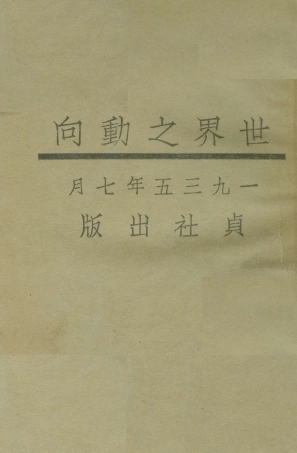 世界之動向
一九三五年七月
貞社出版